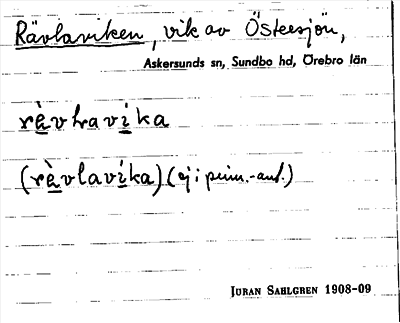 Rävlaviken, vik av Östersjön,
Askersunds sn, Sundbo hd, Örebro län
rävlavika
(rävlavika) (ej: prim.-anf.)
JÖRAN SAHLGREN 1908-09